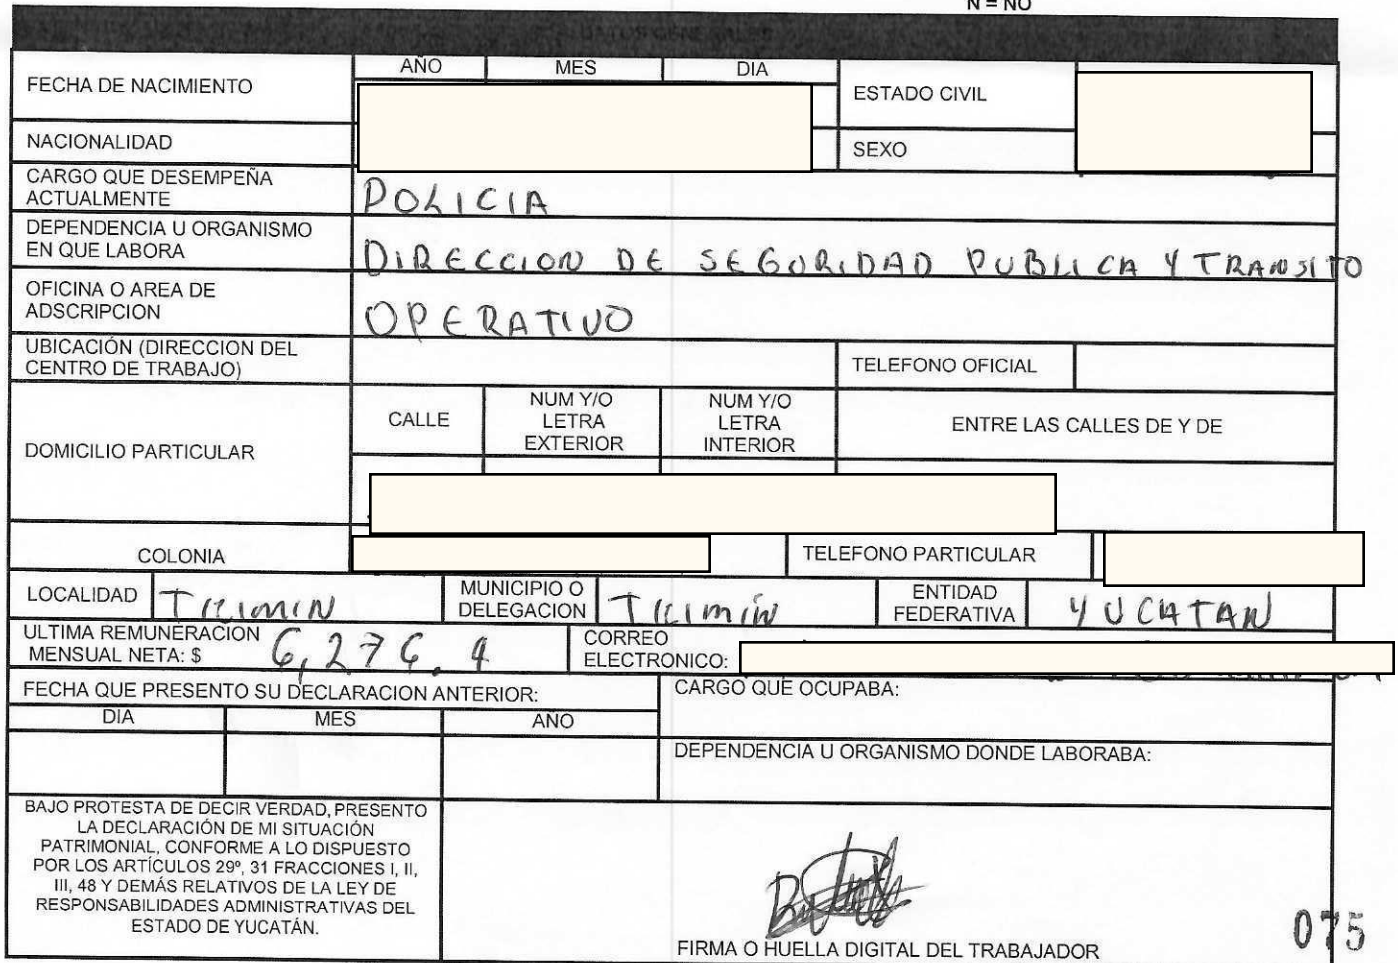 N = NO
DATOS GENERALES
FECHA DE NACIMIENTO
AÑO MES DIA
ESTADO CIVIL
NACIONALIDAD
SEXO
CARGO QUE DESEMPEÑA
ACTUALMENTE
POLICIA
DEPENDENCIA U ORGANISMO
EN QUE LABORA
DIRECCION DE SEGURIDAD PUBLICA Y TRANSITO
OFICINA O AREA DE
ADSCRIPCION
OPERATIVO
UBICACIÓN (DIRECCION DEL
CENTRO DE TRABAJO)
TELEFONO OFICIAL
DOMICILIO PARTICULAR
CALLE
NUM Y/O
LETRA
EXTERIOR
NUM Y/O
LETRA
INTERIOR
ENTRE LAS CALLES DE Y DE
COLONIA
TELEFONO PARTICULAR
LOCALIDAD
TIZIMIN
MUNICIPIO O
DELEGACION
TIZIMÍN
ENTIDAD
FEDERATIVA
YUCATAN
ULTIMA REMUNERACION
MENSUAL NETA: $
6,276.4
CORREO
ELECTRONICO:
FECHA QUE PRESENTO SU DECLARACION ANTERIOR:
CARGO QUE OCUPABA:
DIA MES AÑO
DEPENDENCIA U ORGANISMO DONDE LABORABA:
BAJO PROTESTA DE DECIR VERDAD, PRESENTO
LA DECLARACIÓN DE MI SITUACIÓN
PATRIMONIAL, CONFORME A LO DISPUESTO
POR LOS ARTÍCULOS 29º, 31 FRACCIONES I, II,
III, 48 Y DEMÁS RELATIVOS DE LA LEY DE
RESPONSABILIDADES ADMINISTRATIVAS DEL
ESTADO DE YUCATÁN.
FIRMA O HUELLA DIGITAL DEL TRABAJADOR
075